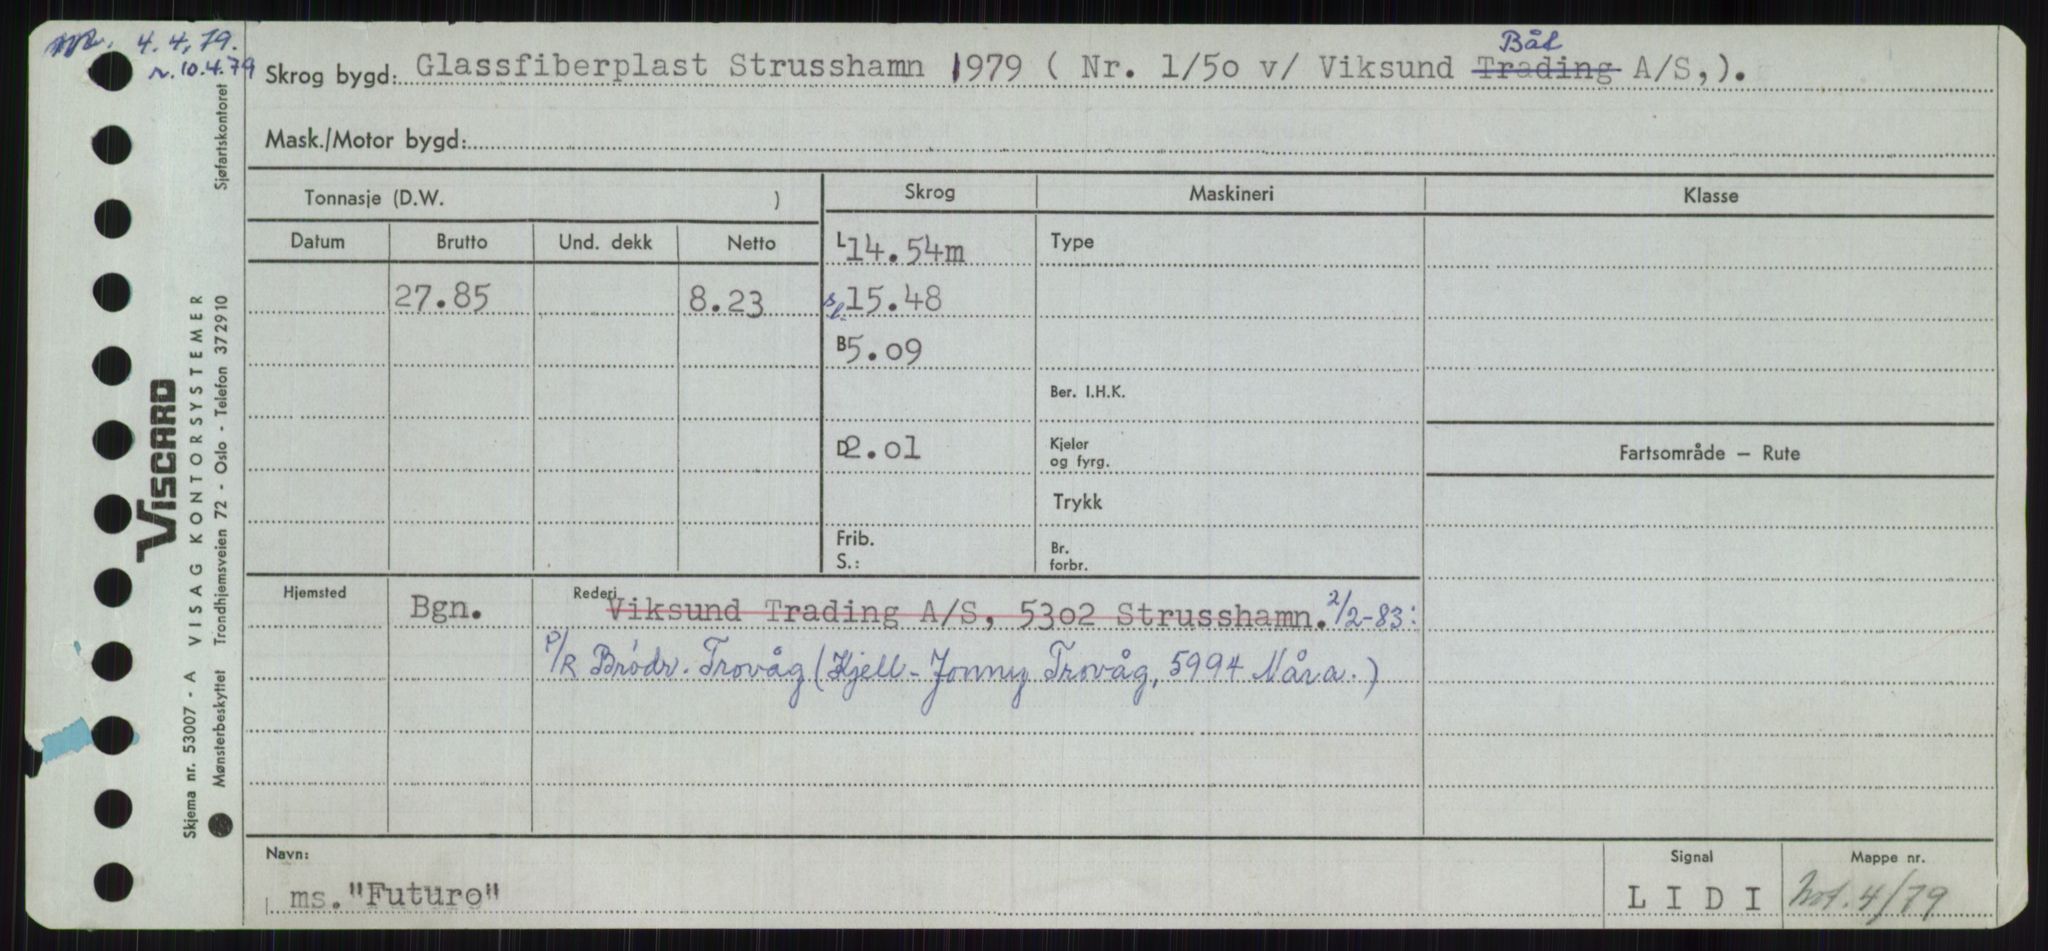 4.4.79.
r. 10.4.79
Båt
Skrog bygd: Glassfiberplast Strusshamn 1979 ( Nr. 1/5o v/ Viksund Trading A/S,).
Mask./Motor bygd:
Tonnasje (D.W. )
Skrog Maskineri Klasse
Datum Brutto Und. dekk Netto
L 14.54m Type
27.85 8.23 sl. 15.48
B 5.o9
Ber. I.H.K.
D 2.o1 Kjeler og fyrg.
Fartsområde – Rute
Trykk
Frib.
S.:
Br. forbr.
Hjemsted Bgn. Rederi Viksund Trading A/S, 53o2 Strusshamn. 2/2-83:
P/R Brödr. Trovåg (Kjell-Jonny Trovåg, 5994 Nåra.)
Navn: Signal Mappe nr.
ms. "Futuro" L I D I Not. 4/79
Skjema nr. 53007 - A VISAG KONTORSYSTEMER
VISCARD
Mønsterbeskyttet Trondhjemsveien 72 - Oslo - Telefon 372910 Sjøfartskontoret